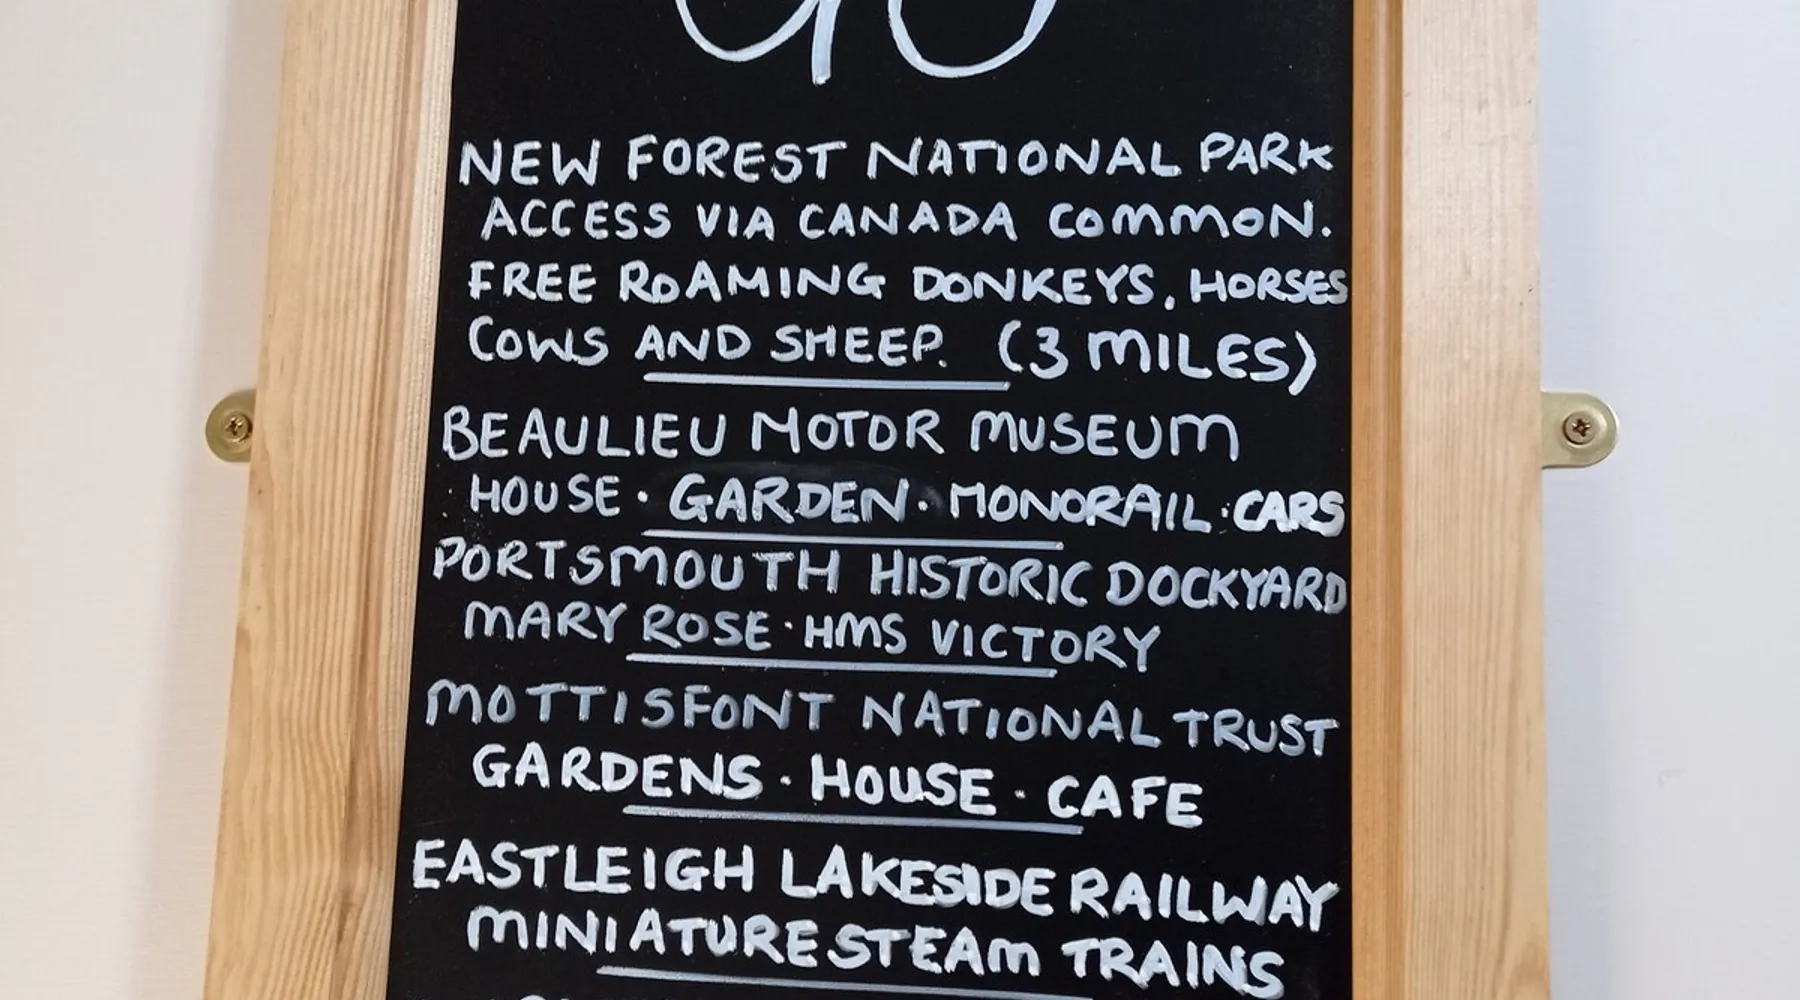 NEW FOREST NATIONAL PARK
ACCESS VIA CANADA COMMON.
FREE ROAMING DONKEYS, HORSES
COWS AND SHEEP. (3 MILES)
BEAULIEU MOTOR MUSEUM
HOUSE · GARDEN · MONORAIL · CARS
PORTSMOUTH HISTORIC DOCKYARD
MARY ROSE · HMS VICTORY
MOTTISFONT NATIONAL TRUST
GARDENS · HOUSE · CAFE
EASTLEIGH LAKESIDE RAILWAY
MINIATURE STEAM TRAINS